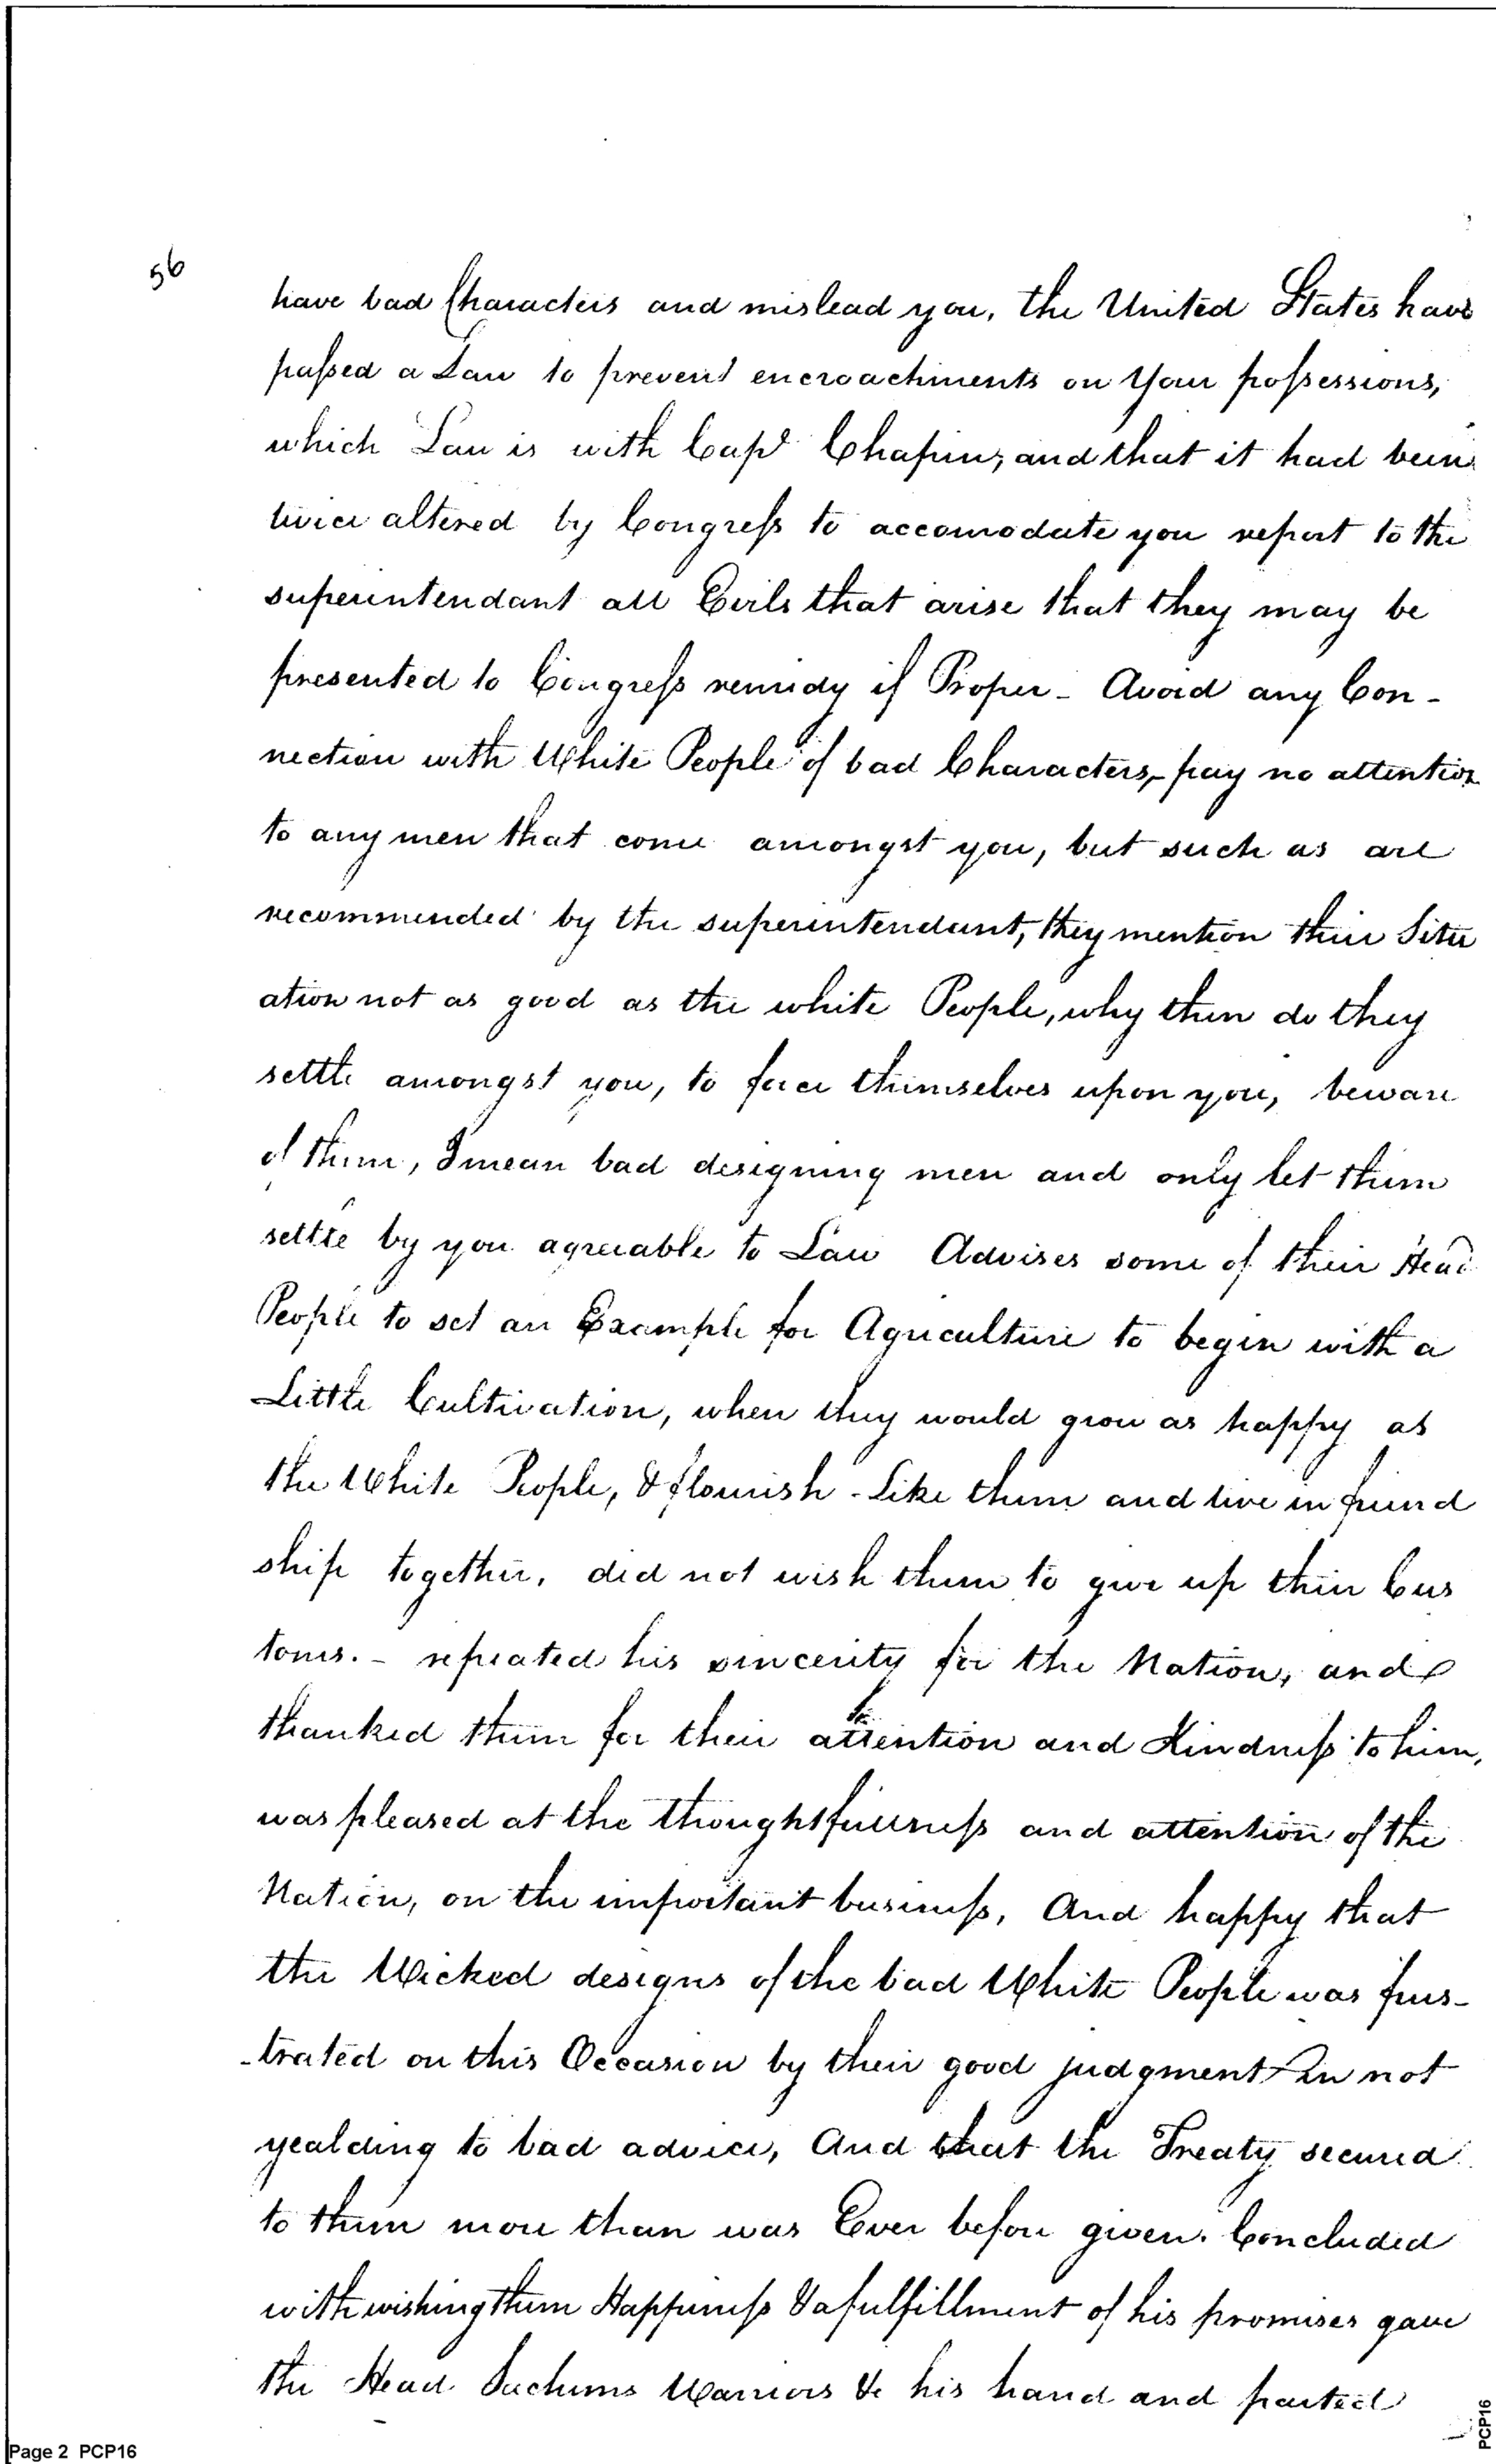 56
have bad Characters and mislead you, the United States have
passed a Law to prevent encroachments on Your possessions,
which Law is with Capt Chapin, and that it had been
twice altered by Congress to accomodate you report to the
superintendant all Evils that arise that they may be
presented to Congress remidy if Proper - Avoid any Con-
nection with White People of bad Characters, pay no attention
to any men that come amongst you, but such as are
recommended by the superintendant, they mention their Situ
ation not as good as the white People, why then do they
settle amongst you, to force themselves upon you, beware
of them, I mean bad designing men and only let them
settle by you agreeable to Law Advises some of their Head
People to set an Example for Agriculture to begin with a
Little Cultivation, when they would grow as happy as
the White People, & flourish Like them and live in friend
ship together, did not wish them to give up their Cus
toms. - repeated his sincerity for the Nation, and
thanked them for their attention and Kindness to him,
was pleased at the thoughtfullness and attention of the
Nation, on the important business, And happy that
the Wicked designs of the bad White People was frus-
-trated on this Occasion by their good judgment In not
yealding to bad advice, And that the Treaty secured
to them more than was Ever before given. Concluded
with wishing them Happiness & a fulfillment of his promises gave
the Head Sachems Warriors &c his hand and parted
Page 2 PCP16
PCP16